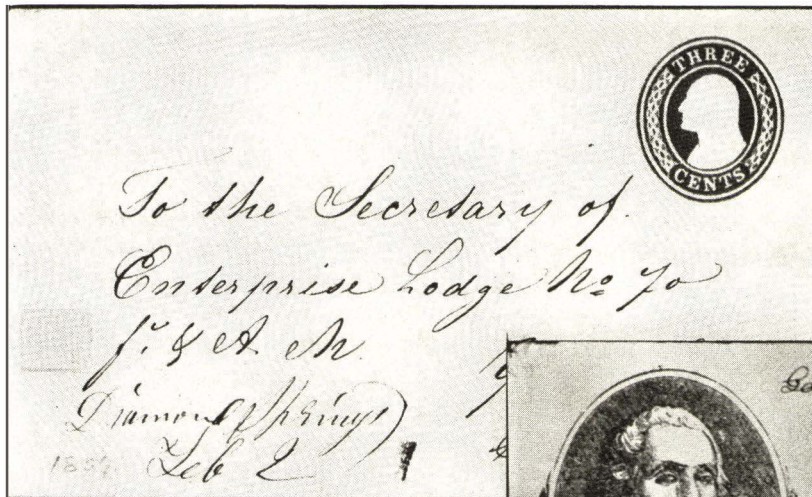 THREE
CENTS
To the Secretary of
Enterprise Lodge No 70
F. & A M.
Diamond Springs
Feb 2